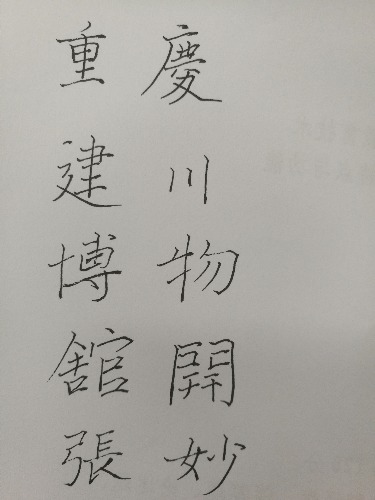 重慶
建川
博物
舘開
張妙